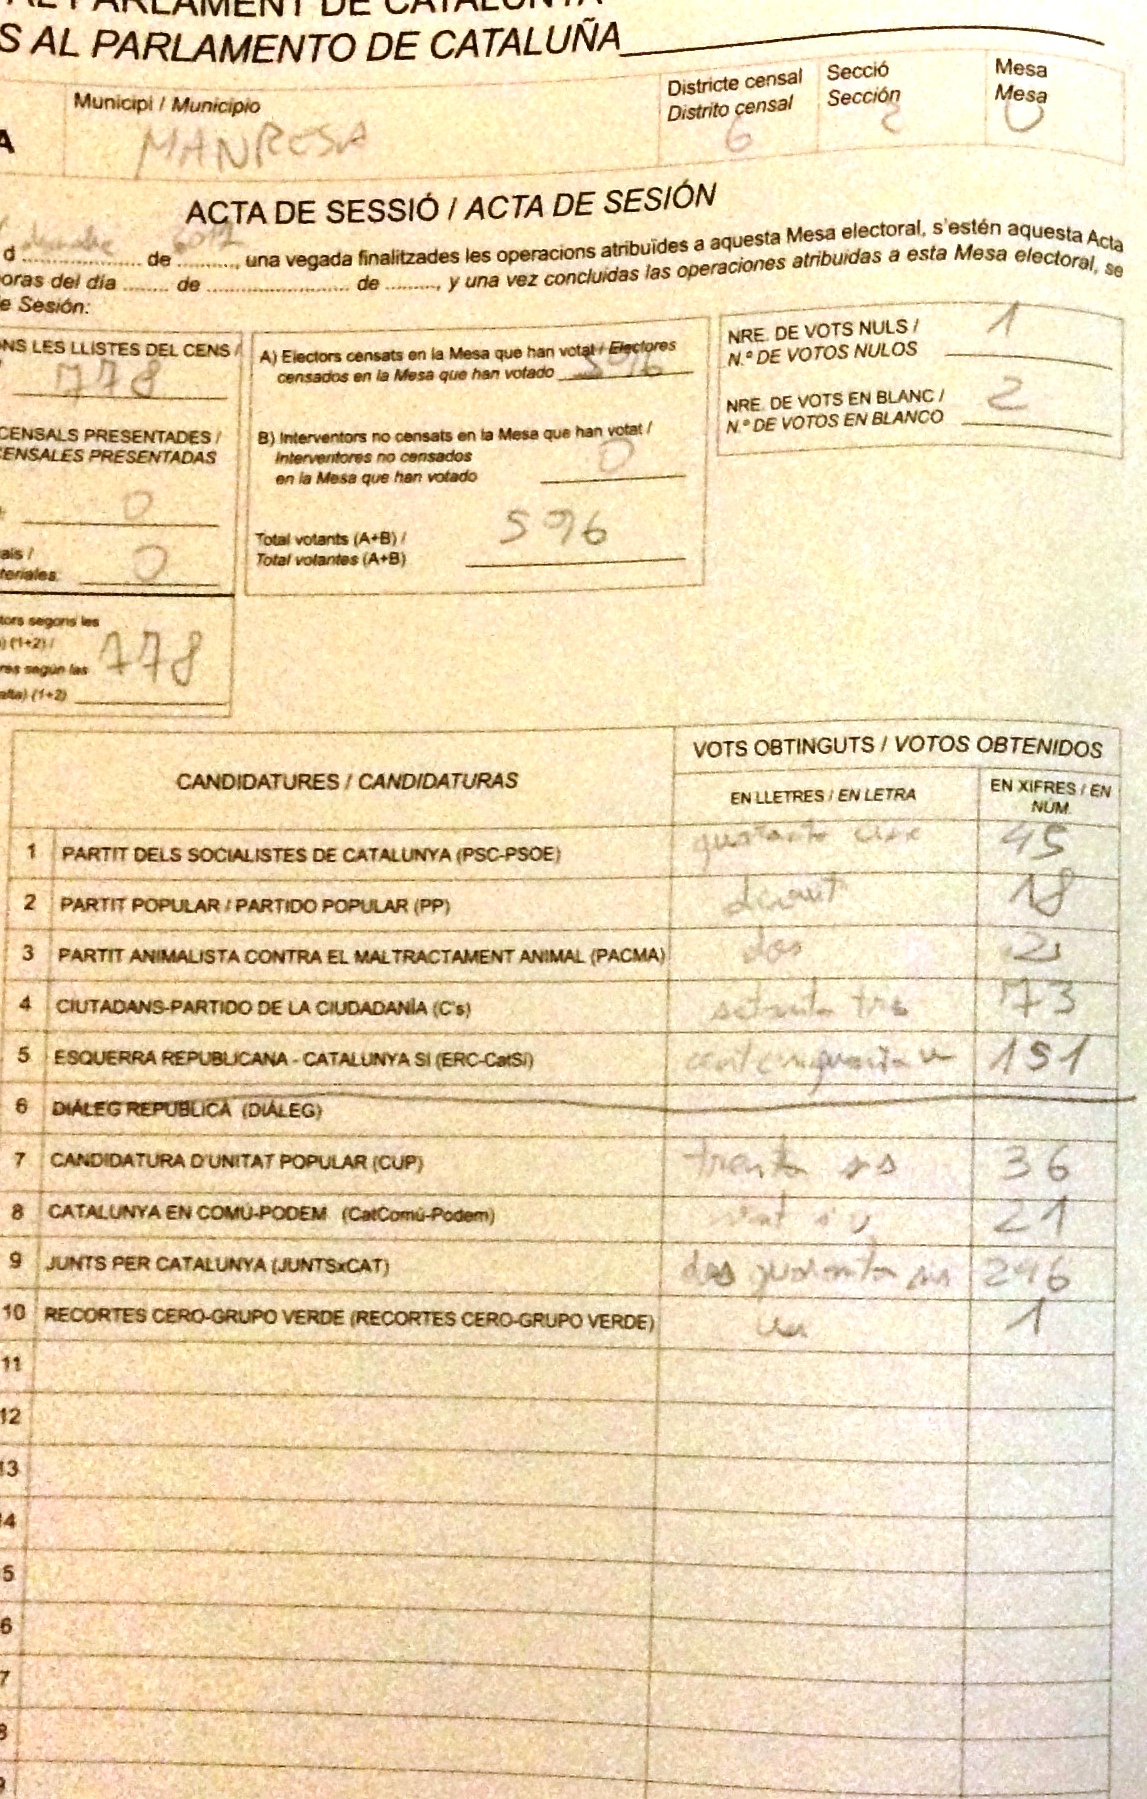 AL PARLAMENT DE CATALUNYA
S AL PARLAMENTO DE CATALUÑA
A
Municipi / Municipio
MANRESA
Districte censal
Distrito censal
6
Secció
Sección
2
Mesa
Mesa
0
ACTA DE SESSIÓ / ACTA DE SESIÓN
d desembre de 2017, una vegada finalitzades les operacions atribuïdes a aquesta Mesa electoral, s'estén aquesta Acta
oras del día ........ de ........................ de ........., y una vez concluidas las operaciones atribuidas a esta Mesa electoral, se
e Sesión:
ONS LES LLISTES DEL CENS /
778
CENSALS PRESENTADES /
CENSALES PRESENTADAS
0
als /
teriales:
0
tors segons les
) (1+2) /
res según las
alta) (1+2)
778
A) Electors censats en la Mesa que han votat / Electores
censados en la Mesa que han votado 596
B) Interventors no censats en la Mesa que han votat /
Interventores no censados
en la Mesa que han votado
0
Total votants (A+B) /
Total votantes (A+B)
596
NRE. DE VOTS NULS /
N.º DE VOTOS NULOS
1
NRE. DE VOTS EN BLANC /
N.º DE VOTOS EN BLANCO
2
CANDIDATURES / CANDIDATURAS
VOTS OBTINGUTS / VOTOS OBTENIDOS
EN LLETRES / EN LETRA
EN XIFRES / EN
NÚM.
1 PARTIT DELS SOCIALISTES DE CATALUNYA (PSC-PSOE) 45
2 PARTIT POPULAR / PARTIDO POPULAR (PP) 18
3 PARTIT ANIMALISTA CONTRA EL MALTRACTAMENT ANIMAL (PACMA) dos 2
4 CIUTADANS-PARTIDO DE LA CIUDADANÍA (C's) setanta tres 73
5 ESQUERRA REPUBLICANA - CATALUNYA SÍ (ERC-CatSí) 151
6 DIÀLEG REPÚBLICA (DIÀLEG)
7 CANDIDATURA D'UNITAT POPULAR (CUP) trenta sis 36
8 CATALUNYA EN COMÚ-PODEM (CatComú-Podem) vint i u 21
9 JUNTS PER CATALUNYA (JUNTSxCAT) dos quaranta sis 246
10 RECORTES CERO-GRUPO VERDE (RECORTES CERO-GRUPO VERDE) un 1
11
12
13
14
5
6
7
8
9